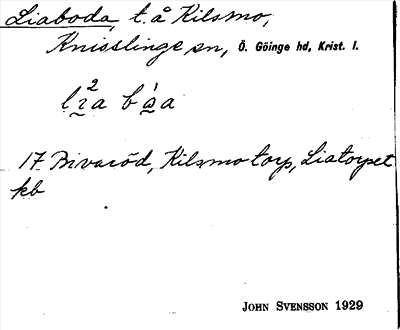 Liaboda, t. å Kilsmo,
Knisslinge sn, Ö. Göinge hd, Krist. l.
17 Bivaröd, Kilsmotorp, Liatorpet
kb
JOHN SVENSSON 1929